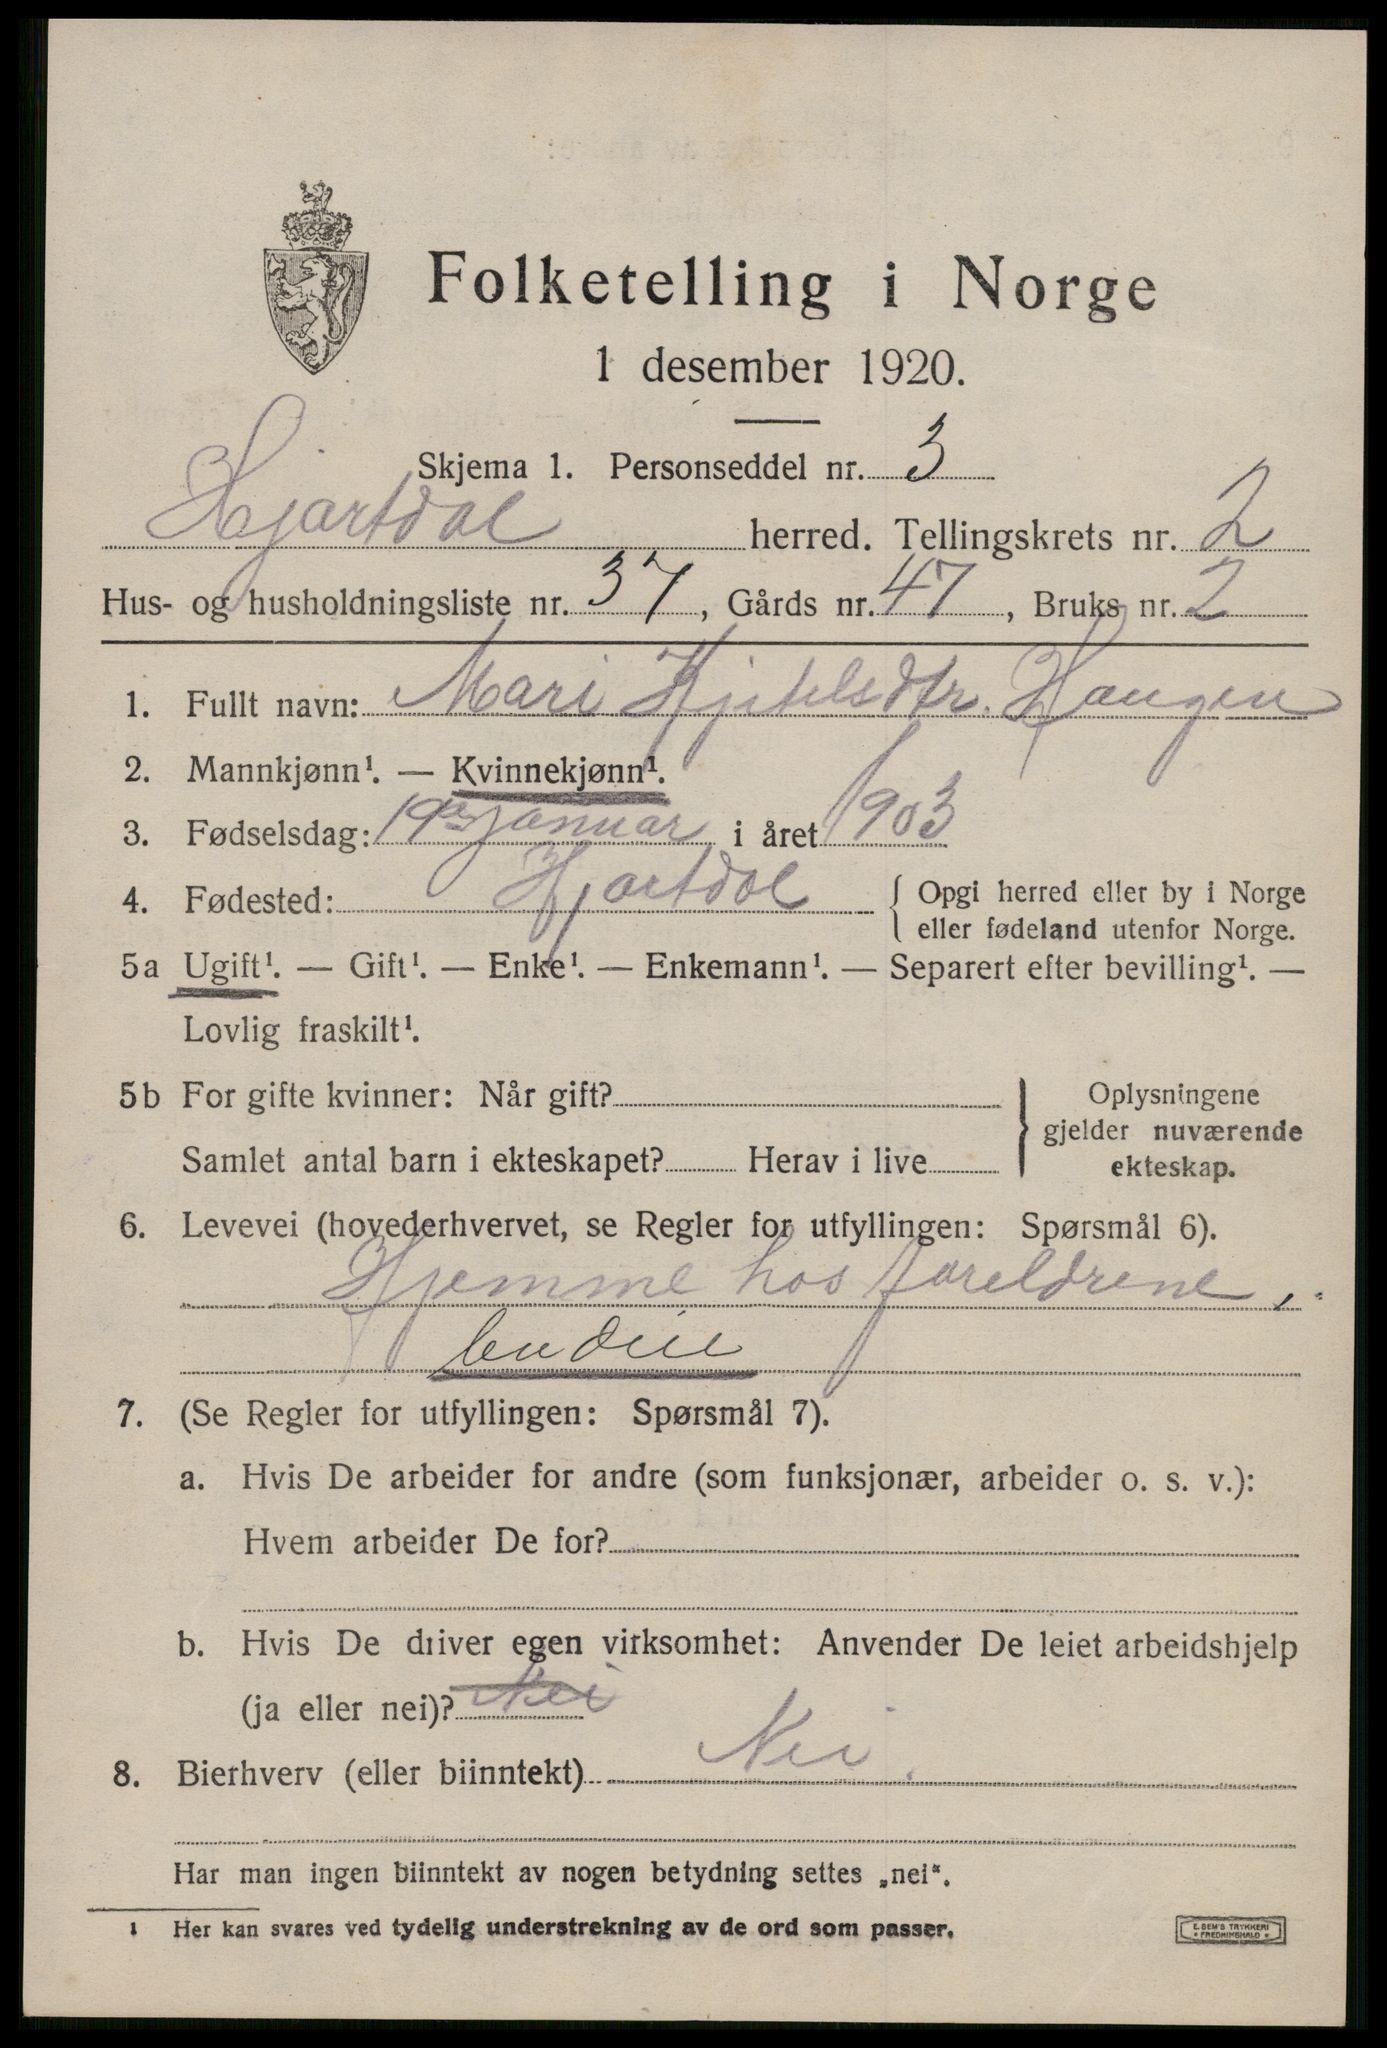 Folketelling i Norge
1 desember 1920.
Skjema 1. Personseddel nr. 3
Hjartdal herred. Tellingskrets nr. 2
Hus- og husholdningsliste nr. 37, Gårds nr. 47, Bruks nr. 2
1. Fullt navn: Mari Kjetelsdtr. Haugen
2. Mannkjønn¹. — Kvinnekjønn¹.
3. Fødselsdag: 19de januar i året 1903
4. Fødested: Hjartdal { Opgi herred eller by i Norge
eller fødeland utenfor Norge.
5a Ugift¹. — Gift¹. — Enke¹. — Enkemann¹. — Separert efter bevilling¹. —
Lovlig fraskilt¹.
5b For gifte kvinner: Når gift? } Oplysningene
gjelder nuværende
Samlet antal barn i ekteskapet? Herav i live
ekteskap.
6. Levevei (hovederhvervet, se Regler for utfyllingen: Spørsmål 6).
Hjemme hos foreldrene,
budeie
7. (Se Regler for utfyllingen: Spørsmål 7).
a. Hvis De arbeider for andre (som funksjonær, arbeider o. s. v.):
Hvem arbeider De for?
b. Hvis De driver egen virksomhet: Anvender De leiet arbeidshjelp
(ja eller nei)? Nei
8. Bierhverv (eller biinntekt) Nei.
Har man ingen biinntekt av nogen betydning settes „nei“.
1 Her kan svares ved tydelig understrekning av de ord som passer.
E. SEM'S TRYKKERI
* FREDRIKSHALD *